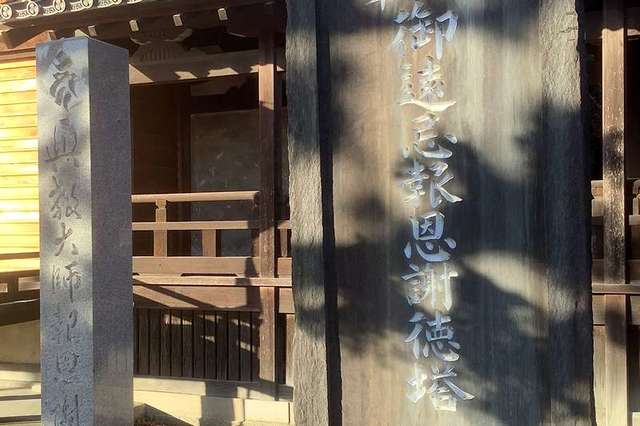 御遠忌報恩謝徳塔
興教大師報恩謝